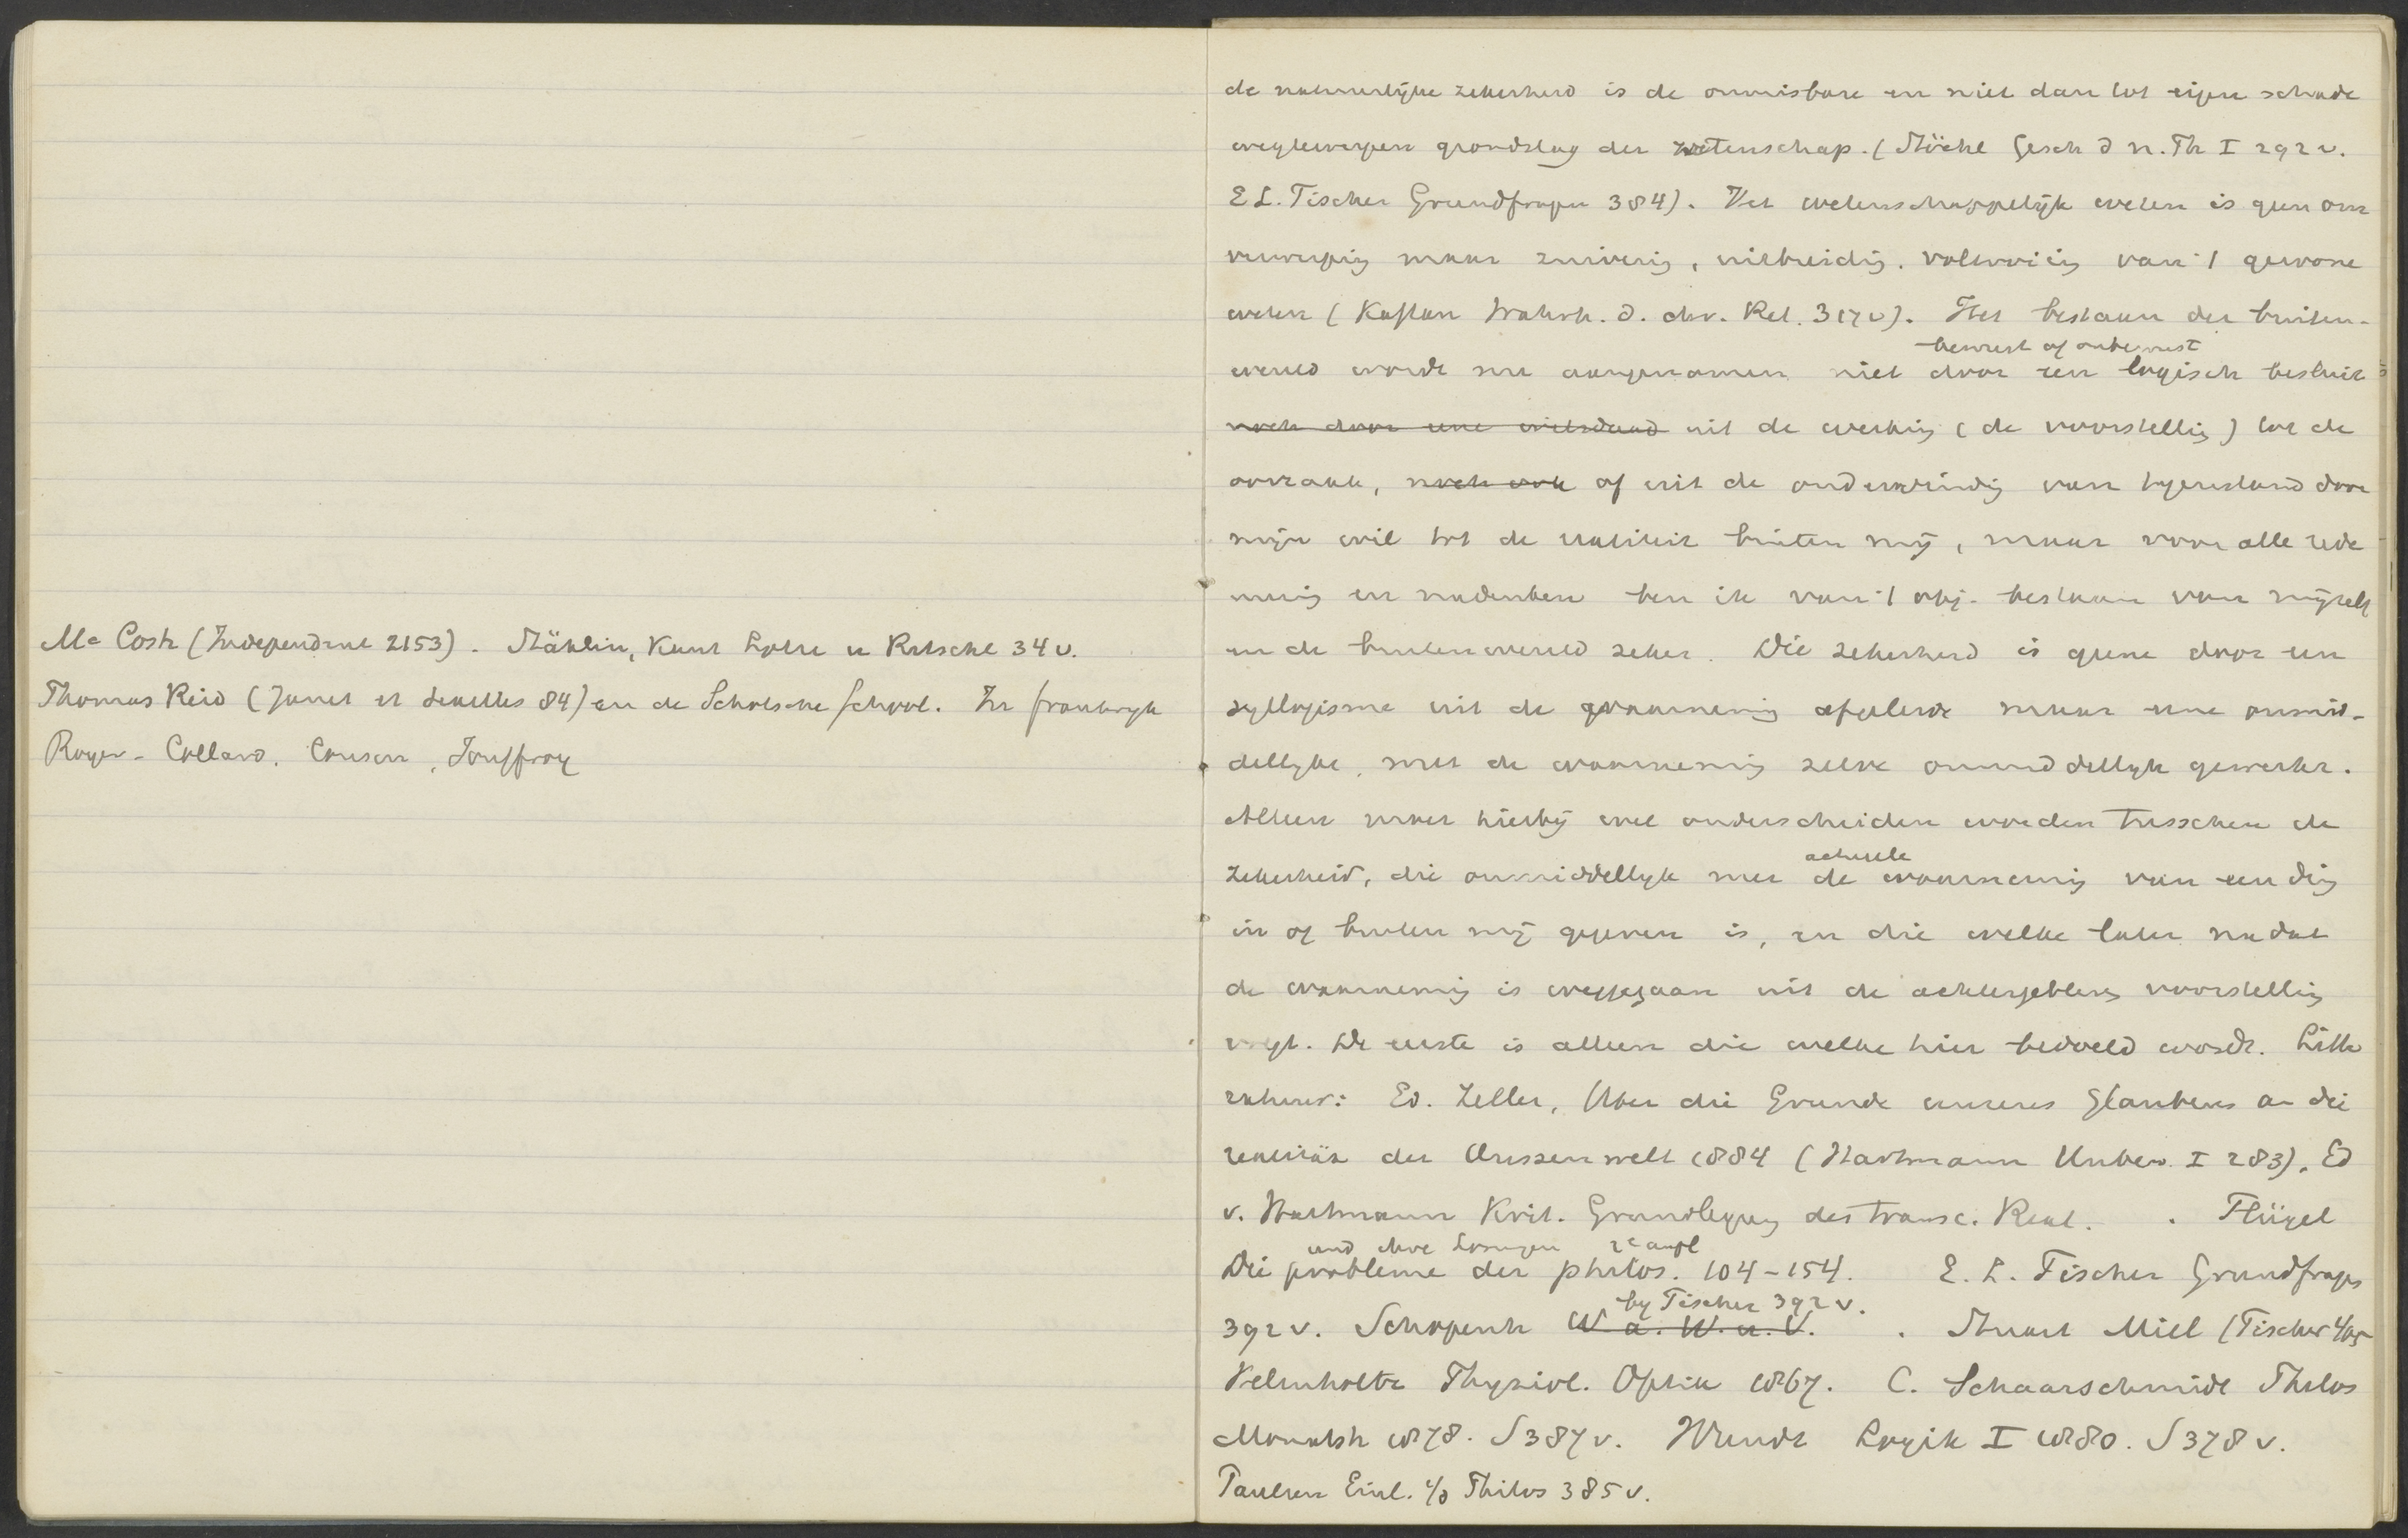 Mc Cosh (Independent 2153). Stählin, Kant Lotze u Ritschl 34 v.
Thomas Reid (Janet et Seailles 84) en de Schotsche School. In frankryk
Royer-Collard, Cousin, Jouffroy
de natuurlijke zekerheid is de onmisbare en niet dan tot eigen schade
weg te werpen grondslag der wetenschap. (Stöckl Gesch d n. Ph I 292 v.
E L. Fischer Grundfragen 384). Het wetenschappelijk weten is geen om
verwerping maar zuivering, uitbreiding, voltooiing van 't gewone
weten (Kaftan Wahrh. d. chr. Rel. 317 v). Het bestaan der buiten-
bewust of onbewust
wereld wordt nu aangenomen niet door een logisch besluit
noch door eene wilsdaad uit de werking (de voorstelling) tot de
oorzaak, noch ook of uit de ondervinding van tegenstand door
mijn wil tot de realiteit buiten mij, maar voor alle rede
neering en nadenken ben ik van 't obj. bestaan van mijzelf
en de buitenwereld zeker. Die zekerheid is geene door een
syllogisme uit de waarneming afgeleide maar eene onmid-
dellyke, met de waarneming zelve onmiddellyk gewerkt.
Alleen moet hierbij wel onderscheiden worden tusschen de
actueele
zekerheid, die onmiddellyk met de waarneming van een ding
in of buiten mij gegeven is, en die welke later nadat
de waarneming is weggegaan uit de achtergebleven voorstelling
volgt. De eerste is alleen die welke hier bedoeld wordt. Litte
ratuur: Ed. Zeller, Uber die Grunde unseres Glaubens an die
realität der Aussenwelt 1884 (Hartmann Unbew. I 283). Ed
v. Hartmann Krit. Grundlegung des transc. Real. . Flügel
und ihre Losungen 2e aufl
Die probleme der philos. 104-154. E. L. Fischer Grundfragen
by Fischer 392 v.
392 v. Schopenh W a. W. u. V. . Stuart Mill (Fischer 405
Helmholtz Physiol. Optik 1867. C. Schaarschmidt Philos
Monatsh 1878. S 387 v. Wundt Logik I 1880. S 378 v.
Paulsen Einl. i/d Philos 385 v.